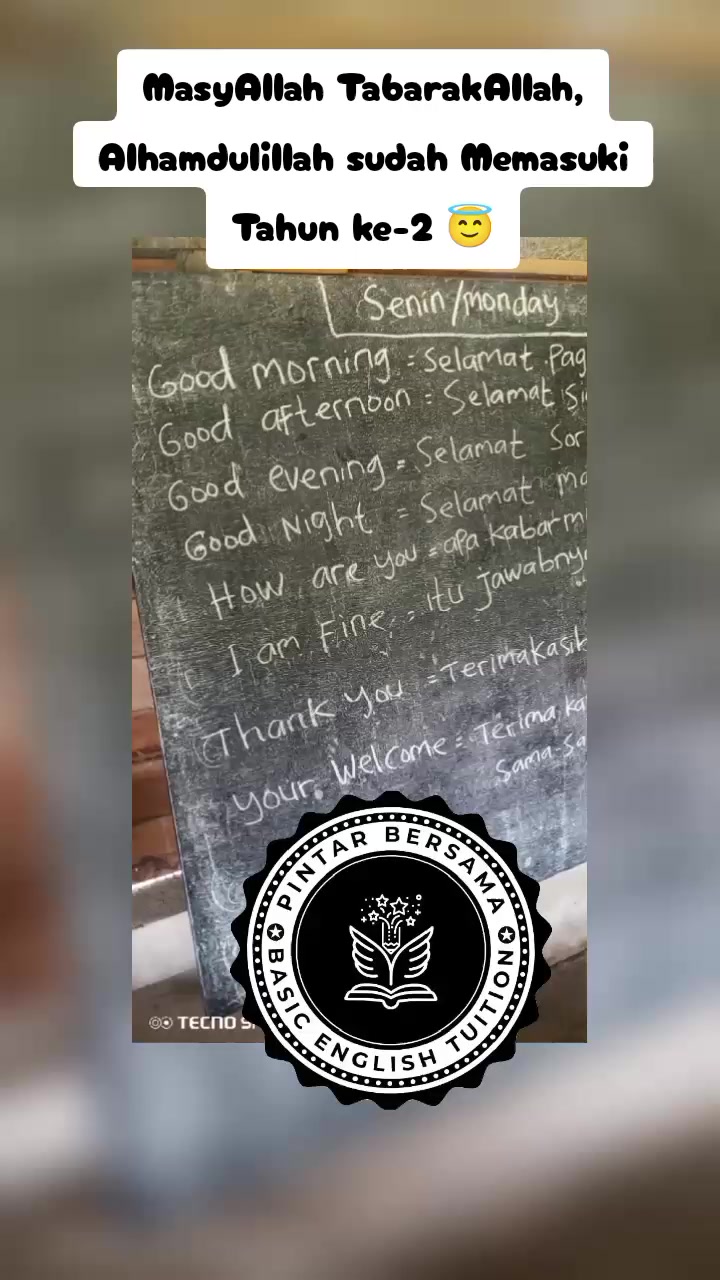 MasyAllah TabarakAllah,
Alhamdulillah sudah Memasuki
Tahun ke-2 😇
Senin/monday
Good morning = Selamat Pag
Good afternoon = Selamat Si
Good evening = Selamat Sor
Good Night = Selamat ma
How are you = apa kabar m
I am Fine = itu jawabny
Thank you = Terimakasi
your Welcome = Terima ka
Sama-sa
PINTAR BERSAMA
BASIC ENGLISH TUITION
TECNO